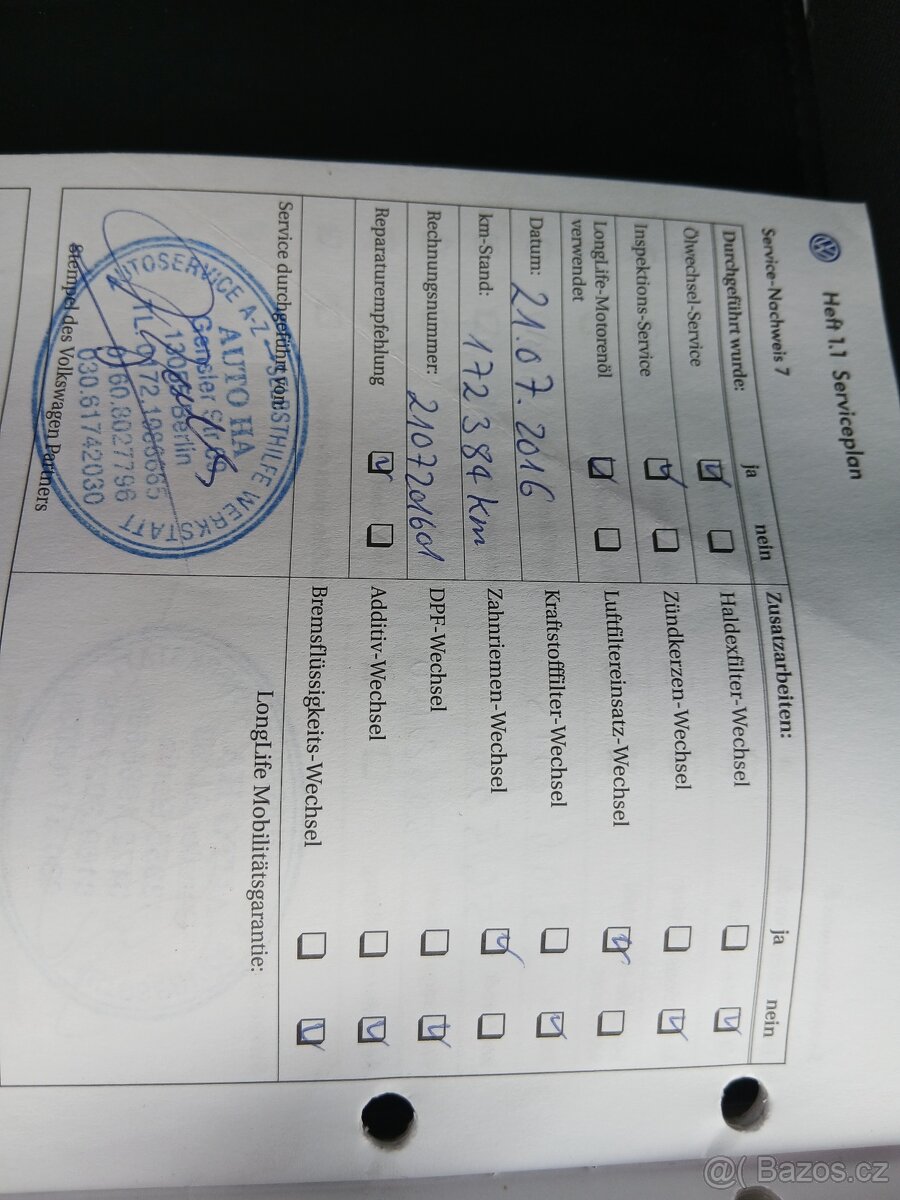 Heft 1.1 Serviceplan
Service-Nachweis 7
Durchgeführt wurde: ja nein
Ölwechsel-Service
Inspektions-Service
LongLife-Motorenöl
verwendet
Datum: 21.07.2016
km-Stand: 172 384 km
Rechnungsnummer: 2107201601
Reparaturempfehlung
Service durchgeführt von:
AUTOSERVICE A-Z SELBSTHILFE WERKSTATT
AUTO HA
Gensler Str.
Berlin
030.61742030
Stempel des Volkswagen Partners
Zusatzarbeiten: ja nein
Haldexfilter-Wechsel
Zündkerzen-Wechsel
Luftfiltereinsatz-Wechsel
Kraftstofffilter-Wechsel
Zahnriemen-Wechsel
DPF-Wechsel
Additiv-Wechsel
Bremsflüssigkeits-Wechsel
LongLife Mobilitätsgarantie:
@( Bazos.cz